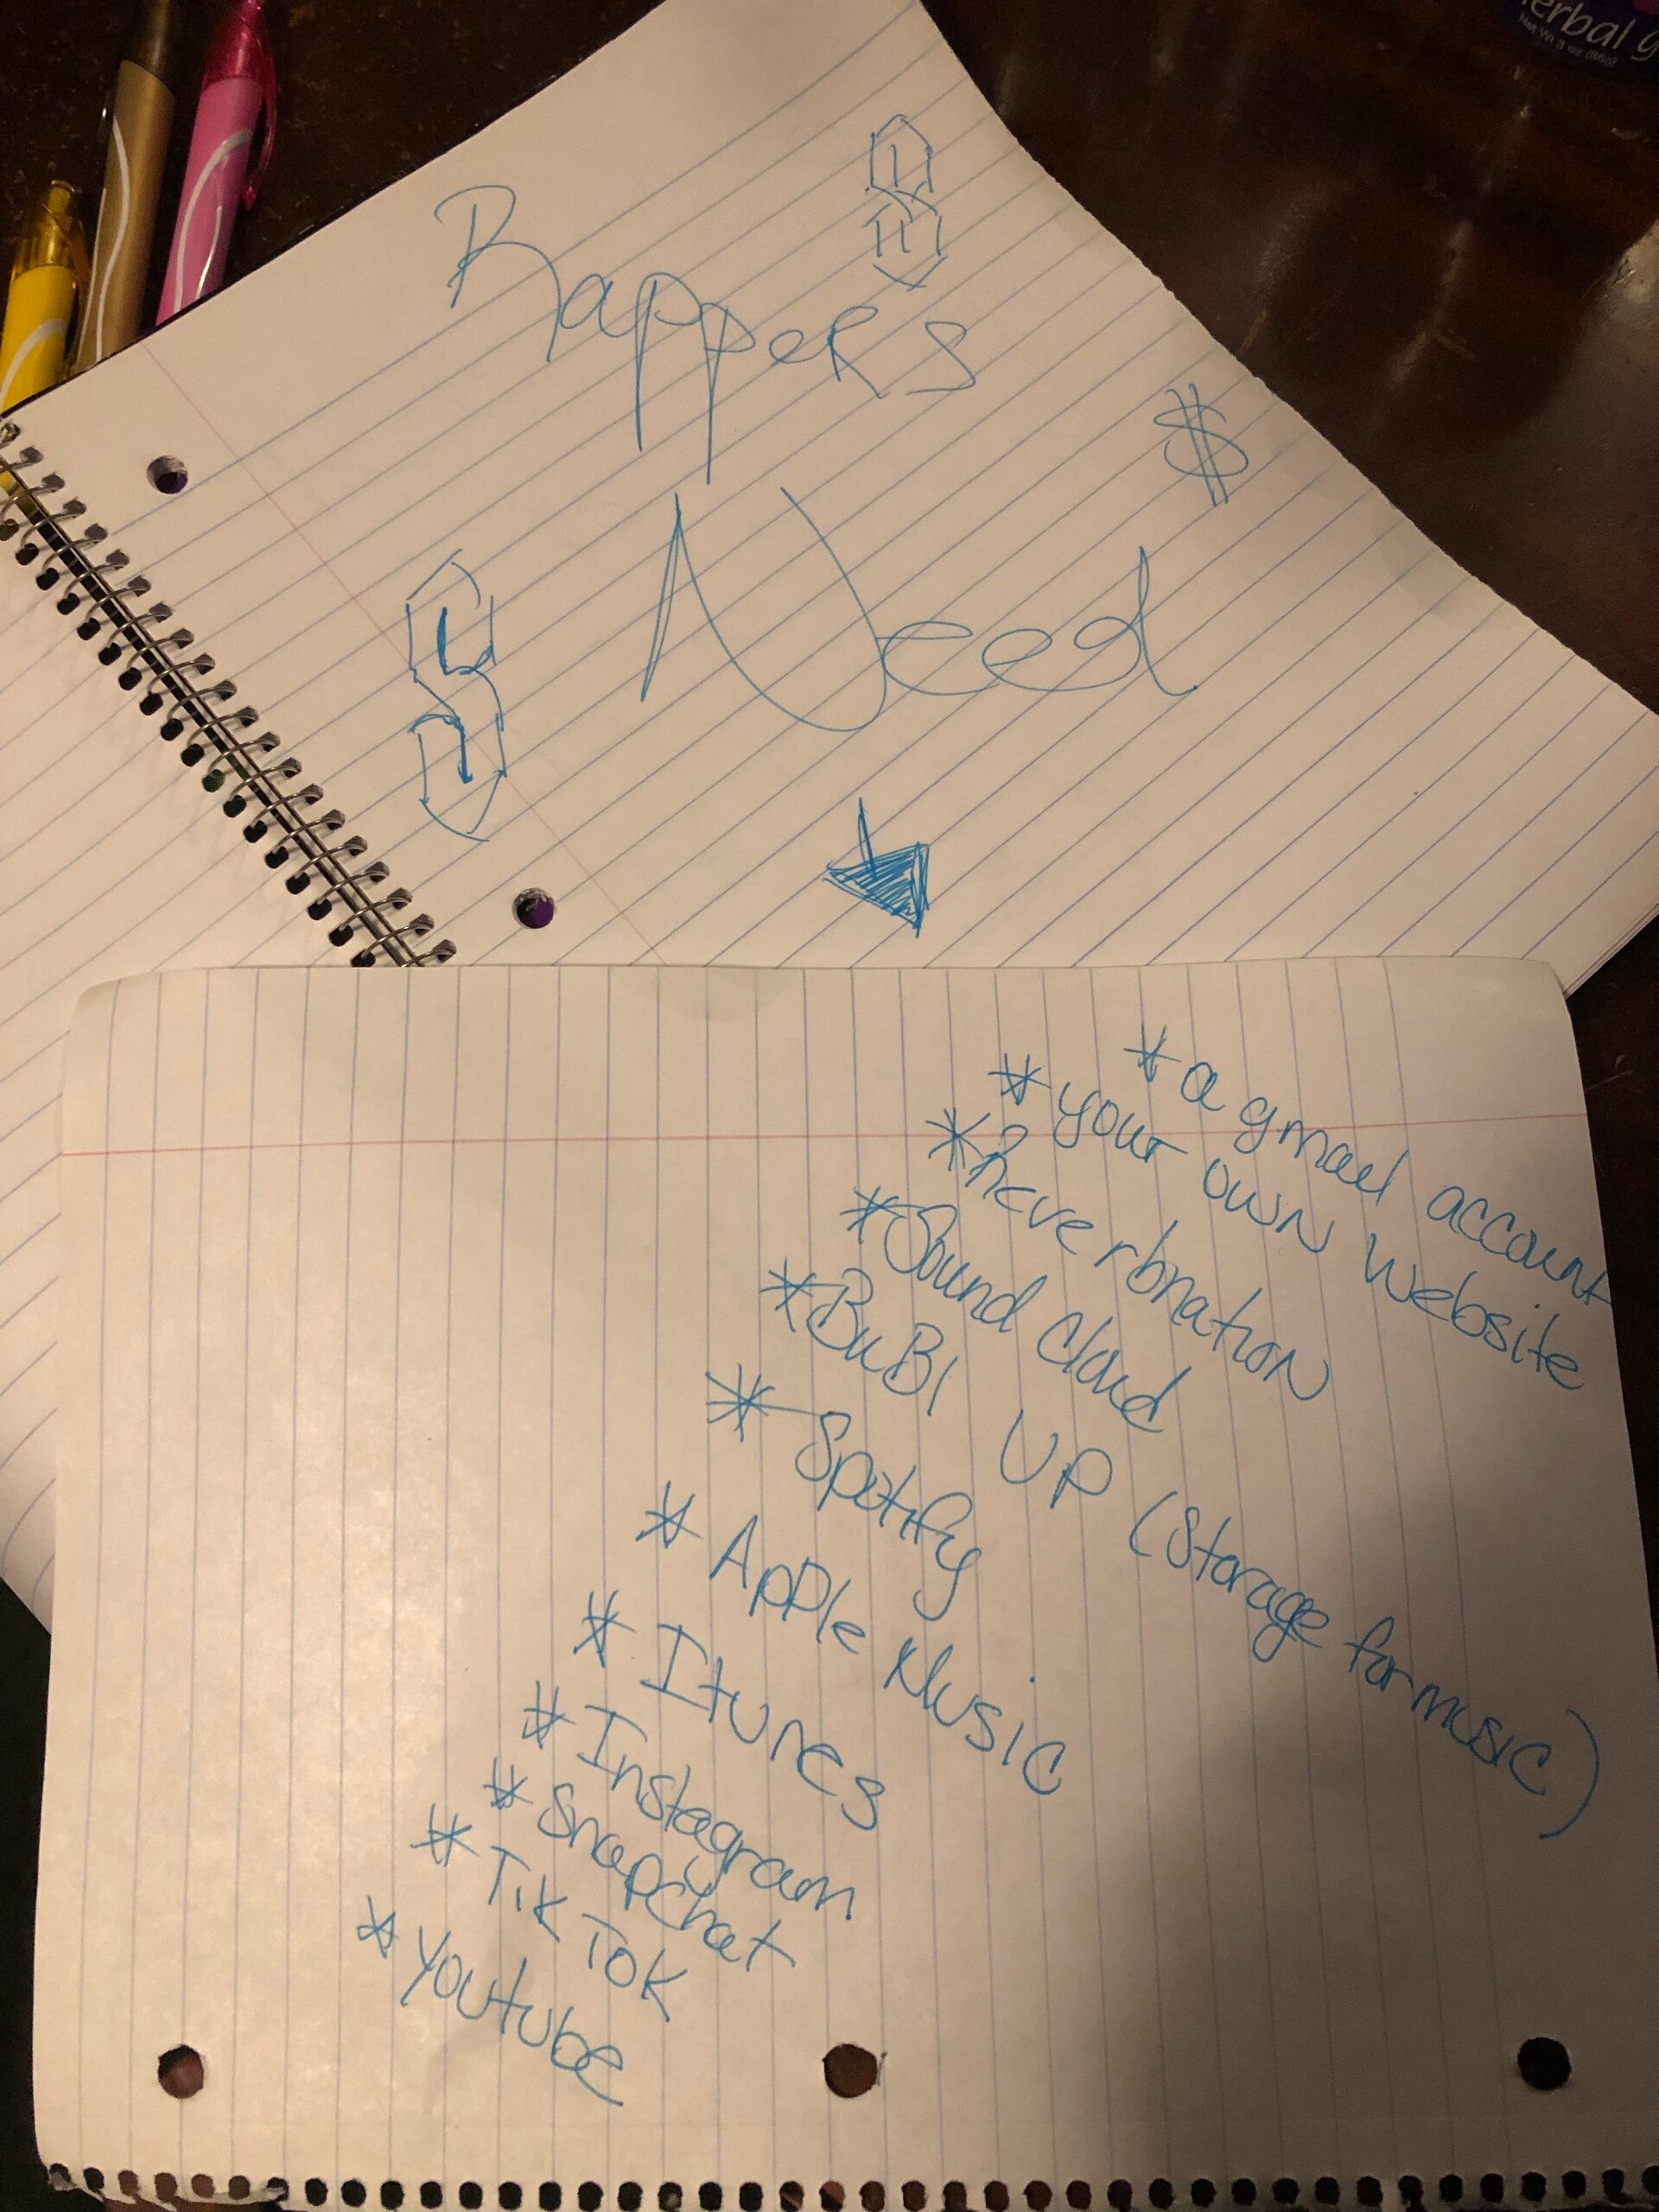 erbal g
Net Wt 3 oz (85g)
Rappers
$
Need
* a gmail account
* your own website
* Reverbnation
* Sound Cloud
* BuBl UP (Storage for music)
* Spotify
* Apple Music
* Itunes
* Instagram
* Snapchat
* TikTok
* Youtube